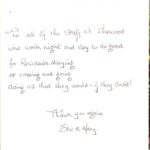 To all of the Staff at
who work night and day to do good
for Residents staying
or coming and going
doing all that they would - if they could!
Thank you again